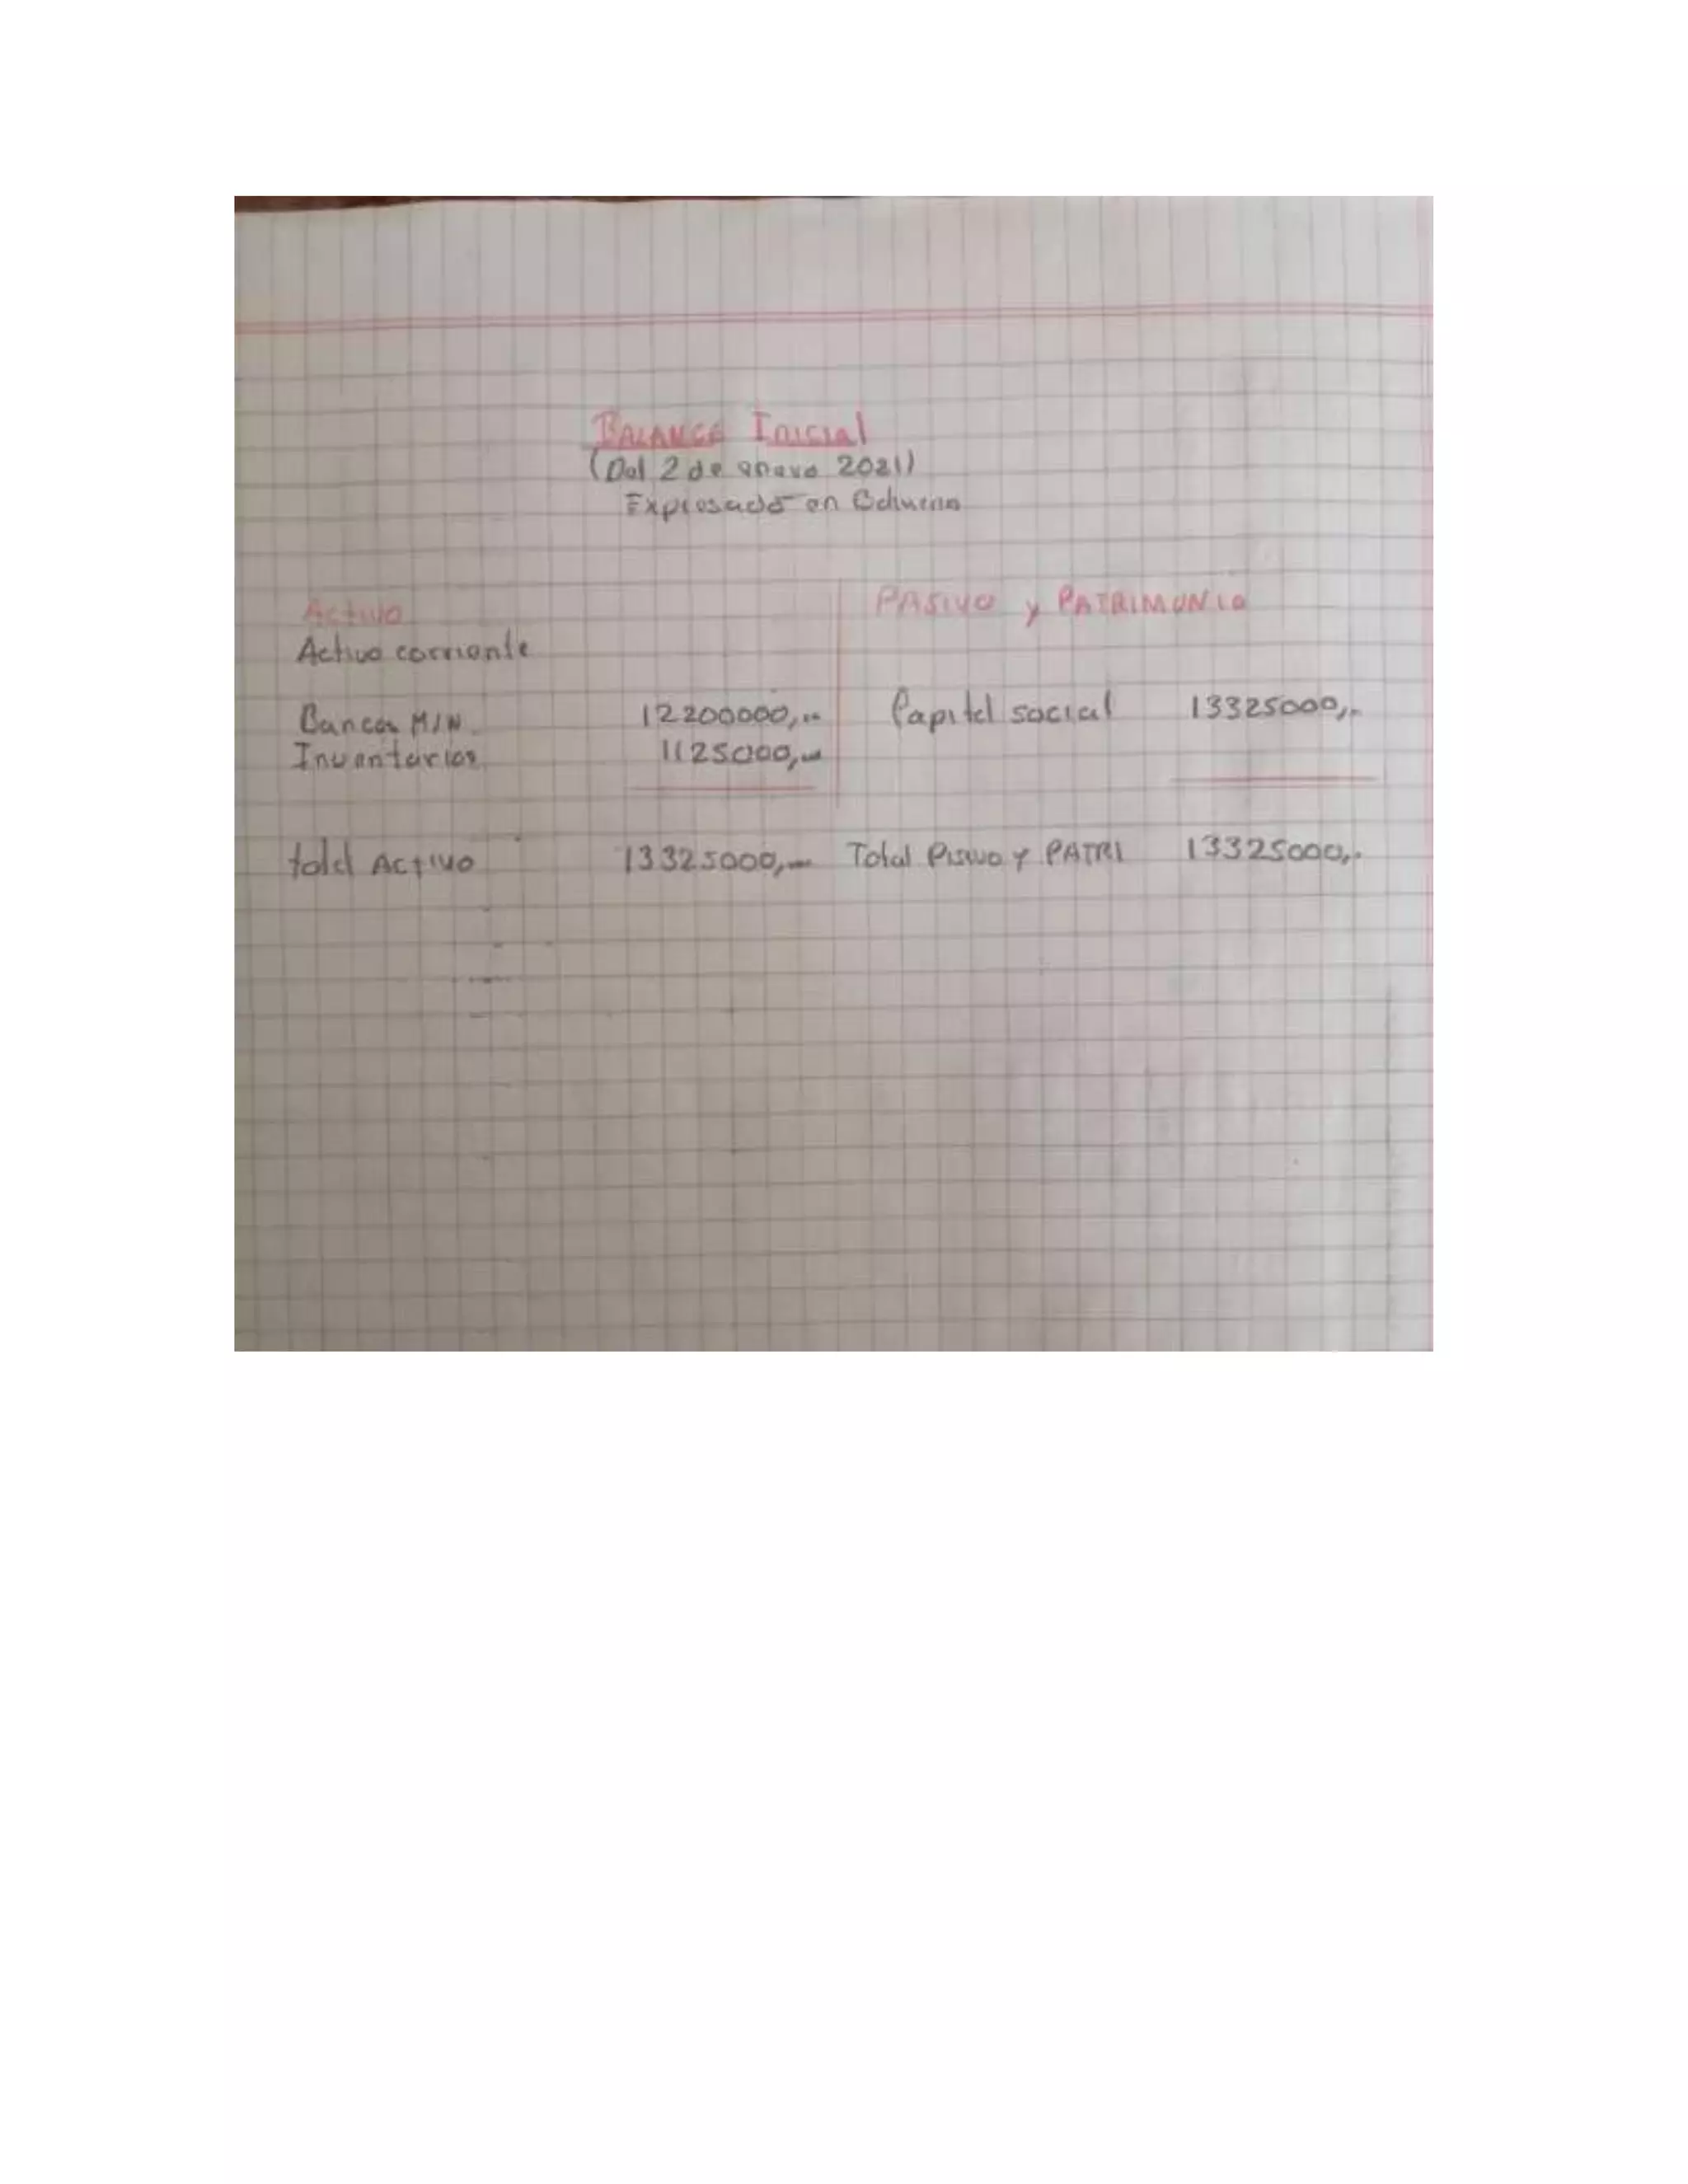 BALANCE Inicial
(Del 2 de enero 2021)
Expresado en
Activo PASIVO y PATRIMONIO
Activo corriente
Banco M/N 12200000,-- Capital social 13325000,--
Inventarios 1125000,--
total Activo 13325000,-- Total Pisivo y PATRI 13325000,--